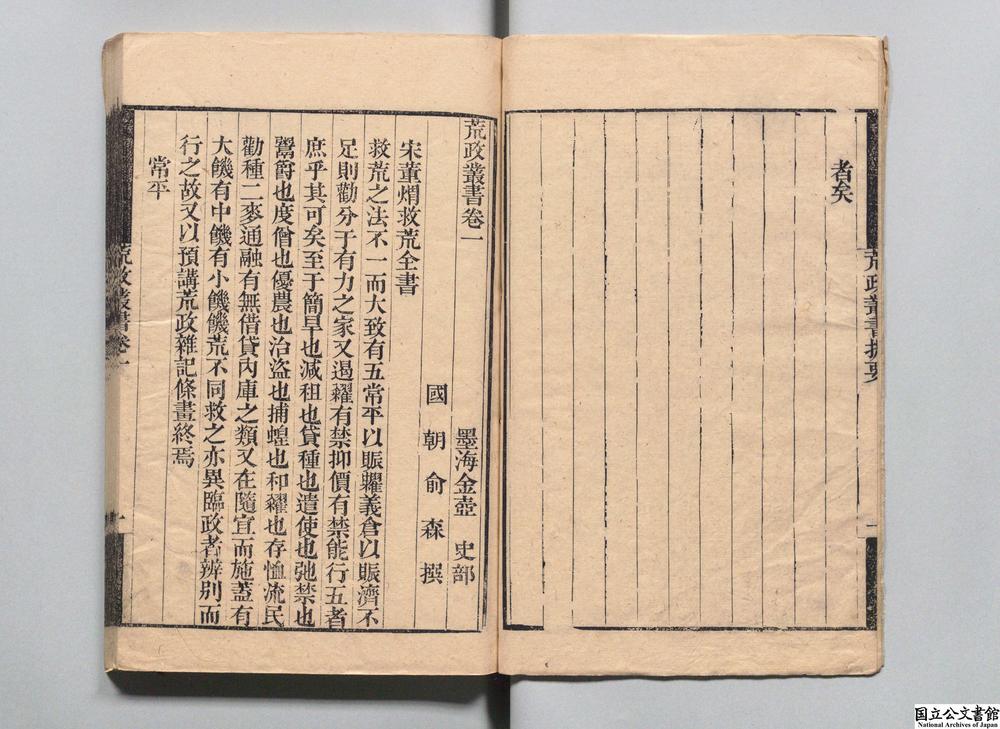 者矣
荒政叢書提要
一
荒政叢書卷一
墨海金壺 史部
國朝俞森撰
宋董煟救荒全書
救荒之法不一而大致有五常平以賑糶義倉以賑濟不
足則勸分于有力之家又遏糴有禁抑價有禁能行五者
庶乎其可矣至于簡旱也減租也貸種也遣使也弛禁也
鬻爵也度僧也優農也治盜也捕蝗也和糴也存恤流民
勸種二麥通融有無借貸內庫之類又在隨宜而施蓋有
大饑有中饑有小饑饑荒不同救之亦異臨政者辨別而
行之故又以預講荒政雜記條畫終焉
常平
荒政叢書卷一
一
国立公文書館
National Archives of Japan